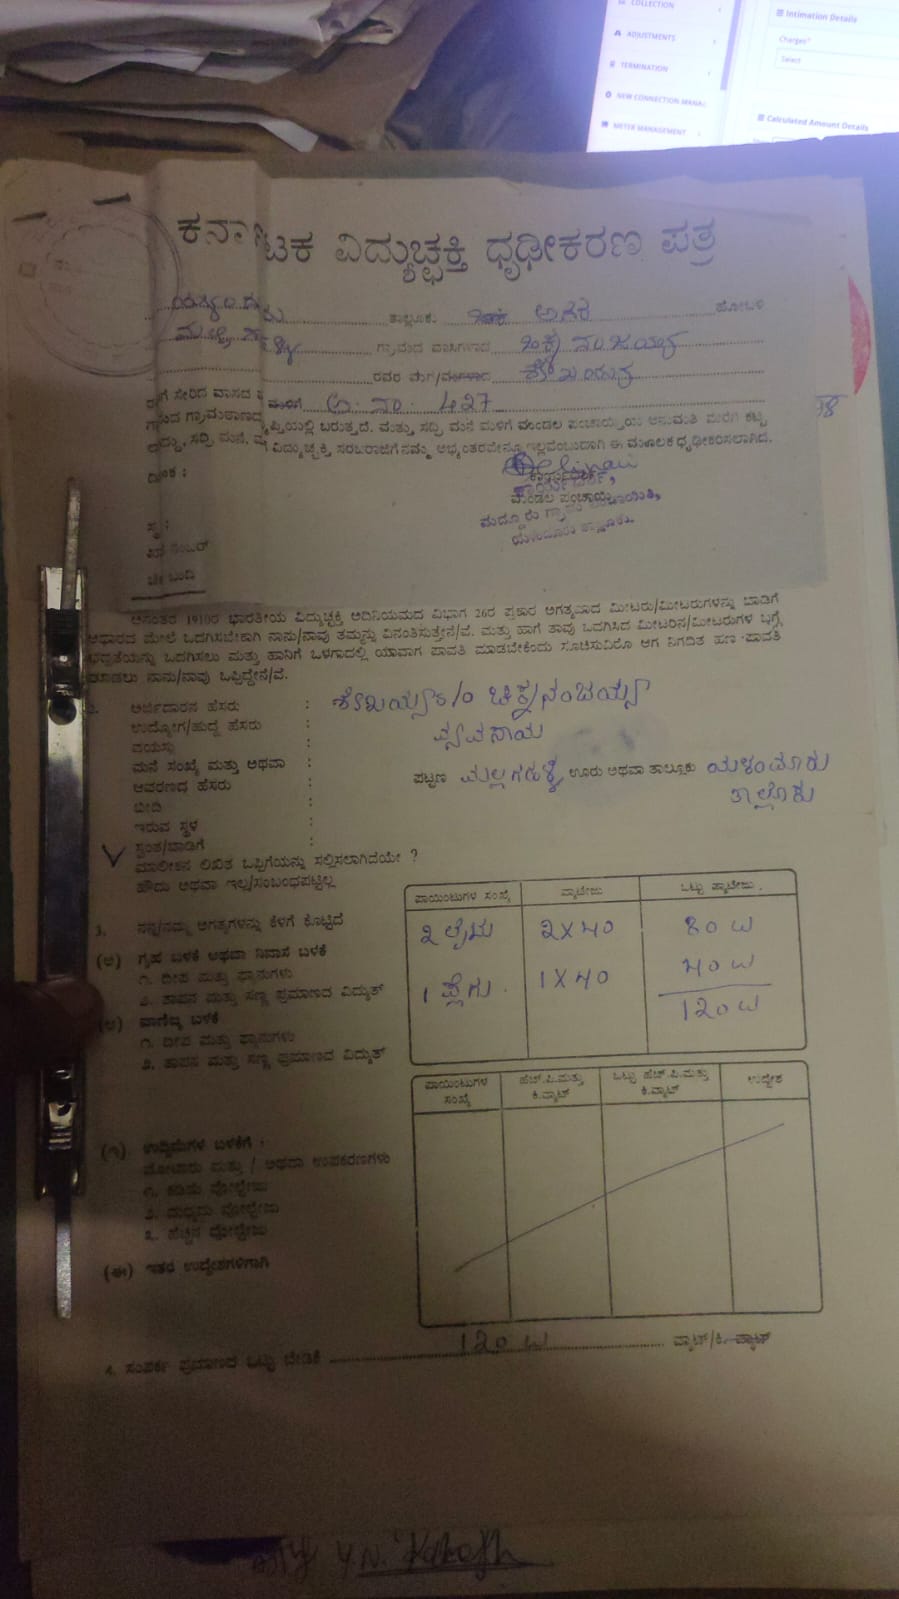 COLLECTION
ADJUSTMENTS
TERMINATION
NEW CONNECTION MANA
METER MANAGEMENT
Intimation Details
Charges*
Select
Calculated Amount Details
ಕರ್ನಾಟಕ ವಿದ್ಯುಚ್ಛಕ್ತಿ ಧೃಢೀಕರಣ ಪತ್ರ
ತಾಲ್ಲೂಕು ಅಗರ ಹೋಬಳಿ
ಗ್ರಾಮದ ವಾಸಿಗಳಾದ
ರವರ ಮಗ/
ಅ. ನಂ. 427
ಬರುತ್ತದೆ. ಮತ್ತು ಸದ್ರಿ ಮನೆ ಮಳಿಗೆ ಮಂಡಲ ಪಂಚಾಯ್ತಿಯ ಅನುಮತಿ ಮೇರೆಗೆ ಕಟ್ಟಿ
ಸದ್ರಿ ಮನೆ, ವಿದ್ಯುಚ್ಛಕ್ತಿ ಸರಬರಾಜಿಗೆ ನಮ್ಮ ಅಭ್ಯಂತರವೇನೂ ಇಲ್ಲವೆಂಬುದಾಗಿ ಈ ಮೂಲಕ ಧೃಢೀಕರಿಸಲಾಗಿದೆ.
ಕಾರ್ಯದರ್ಶಿ,
ಮಂಡಲ ಪಂಚಾಯ್ತಿ
ಮದ್ದೂರು ಗ್ರಾಮ ಪಂಚಾಯಿತಿ,
ಯಳಂದೂರು ತಾಲ್ಲೂಕು.
ಚೆಕ್ ಬಂದಿ
ಅನಂತರ 1910ರ ಭಾರತೀಯ ವಿದ್ಯುಚ್ಛಕ್ತಿ ಅಧಿನಿಯಮದ ವಿಭಾಗ 26ರ ಪ್ರಕಾರ ಅಗತ್ಯವಾದ ಮೀಟರು/ಮೀಟರುಗಳನ್ನು ಬಾಡಿಗೆ
ಆಧಾರದ ಮೇಲೆ ಒದಗಿಸಬೇಕಾಗಿ ನಾನು/ನಾವು ತಮ್ಮನ್ನು ವಿನಂತಿಸುತ್ತೇನೆ/ವೆ. ಮತ್ತು ಹಾಗೆ ತಾವು ಒದಗಿಸಿದ ಮೀಟರಿನ/ಮೀಟರುಗಳ ಬಗ್ಗೆ
ಭದ್ರತೆಯನ್ನು ಒದಗಿಸಲು ಮತ್ತು ಹಾನಿಗೆ ಒಳಗಾದಲ್ಲಿ ಯಾವಾಗ ಪಾವತಿ ಮಾಡಬೇಕೆಂದು ಸೂಚಿಸುವಿರೊ ಆಗ ನಿಗದಿತ ಹಣ ಪಾವತಿ
ಮಾಡಲು ನಾನು/ನಾವು ಒಪ್ಪಿದ್ದೇನೆ/ವೆ.
2. ಅರ್ಜಿದಾರನ ಹೆಸರು : ಚಿಕ್ಕನಂಜಯ್ಯ
ಉದ್ಯೋಗ/ಹುದ್ದೆ ಹೆಸರು : ವ್ಯವಸಾಯ
ವಯಸ್ಸು :
ಮನೆ ಸಂಖ್ಯೆ ಮತ್ತು ಅಥವಾ : ಪಟ್ಟಣ ಮಲ್ಲಿಗಹಳ್ಳಿ ಊರು ಅಥವಾ ತಾಲ್ಲೂಕು ಯಳಂದೂರು
ಆವರಣದ ಹೆಸರು : ತಾಲ್ಲೊಕು
ಬೀದಿ :
ಇರುವ ಸ್ಥಳ :
ಸ್ವಂತ/ಬಾಡಿಗೆ :
ಮಾಲೀಕನ ಲಿಖಿತ ಒಪ್ಪಿಗೆಯನ್ನು ಸಲ್ಲಿಸಲಾಗಿದೆಯೇ ?
ಹೌದು ಅಥವಾ ಇಲ್ಲ/ಸಂಬಂಧಪಟ್ಟಿಲ್ಲ
3. ನನ್ನ/ನಮ್ಮ ಅಗತ್ಯಗಳನ್ನು ಕೆಳಗೆ ಕೊಟ್ಟಿದೆ
(ಅ) ಗೃಹ ಬಳಕೆ ಅಥವಾ ನಿವಾಸ ಬಳಕೆ
೧. ದೀಪ ಮತ್ತು ಫ್ಯಾನುಗಳು
೨. ತಾಪನ ಮತ್ತು ಸಣ್ಣ ಪ್ರಮಾಣದ ವಿದ್ಯುತ್
(ಆ) ವಾಣಿಜ್ಯ ಬಳಕೆ
೧. ದೀಪ ಮತ್ತು ಫ್ಯಾನುಗಳು
೨. ತಾಪನ ಮತ್ತು ಸಣ್ಣ ಪ್ರಮಾಣದ ವಿದ್ಯುತ್
ಪಾಯಿಂಟುಗಳ ಸಂಖ್ಯೆ ವ್ಯಾಟೇಜು ಒಟ್ಟು ವ್ಯಾಟೇಜು
2 ಲೈಟು 2X40 80 W
1 ಪ್ಲೆಗು. 1X40 40 W
120 W
(ಇ) ಉದ್ದಿಮೆಗಳ ಬಳಕೆಗೆ :
ಮೋಟಾರು ಮತ್ತು / ಅಥವಾ ಉಪಕರಣಗಳು
೧. ಕಡಿಮೆ ವೋಲ್ಟೇಜು
೨. ಮಧ್ಯಮ ವೋಲ್ಟೇಜು
೩. ಹೆಚ್ಚಿನ ವೋಲ್ಟೇಜು
(ಈ) ಇತರ ಉದ್ದೇಶಗಳಿಗಾಗಿ
ಪಾಯಿಂಟುಗಳ ಸಂಖ್ಯೆ ಹೆಚ್.ಪಿ.ಮತ್ತು ಕಿ.ವ್ಯಾಟ್ ಒಟ್ಟು ಹೆಚ್.ಪಿ.ಮತ್ತು ಕಿ.ವ್ಯಾಟ್ ಉದ್ದೇಶ
೪. ಸಂಪರ್ಕ ಪ್ರಮಾಣದ ಒಟ್ಟು ಬೇಡಿಕೆ 120 W ವ್ಯಾಟ್/ಕಿ. ವ್ಯಾಟ್